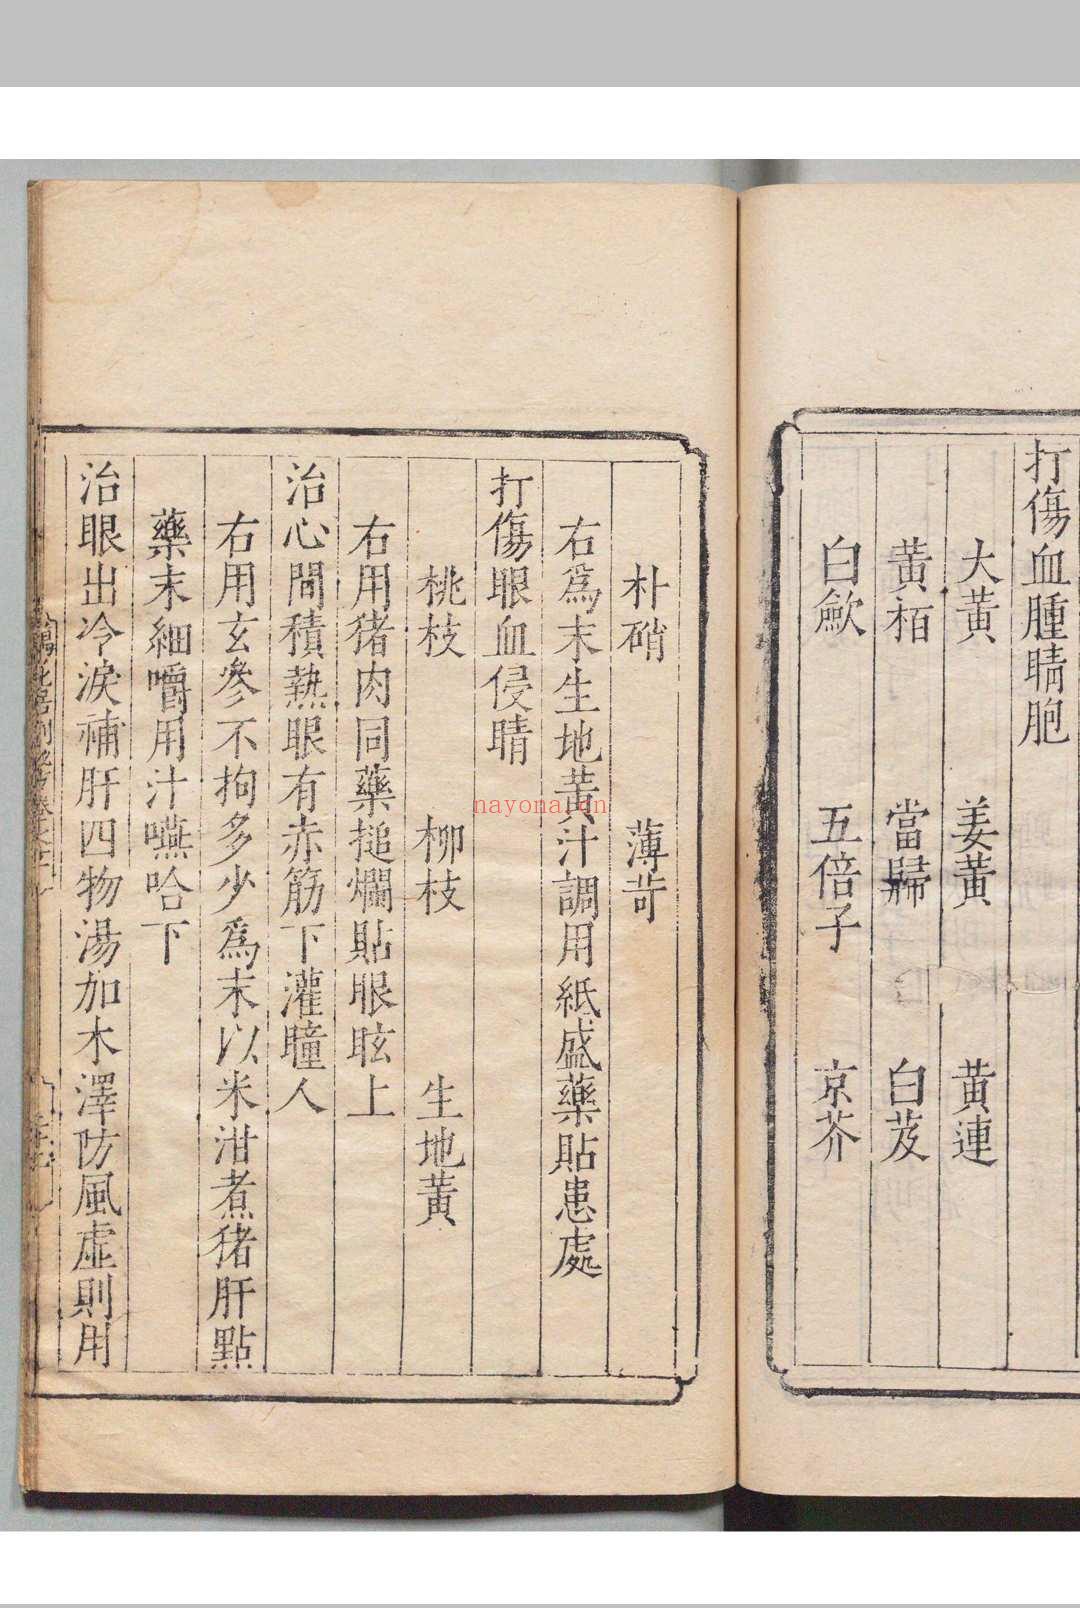 打傷血腫睛胞
大黃 姜黃 黃連
黃栢 當歸 白芨
白歛 五倍子 京芥
朴硝 薄苛
右爲末生地黃汁調用紙盛藥貼患處
打傷眼血侵睛
桃枝 柳枝 生地黃
右用猪肉同藥搥爛貼眼眩上
治心間積熱眼有赤筋下灌瞳人
右用玄參不拘多少爲末以米泔煮猪肝點
藥末細嚼用汁嚥哈下
治眼出冷淚補肝四物湯加木澤防風虛則用
nayona.cn